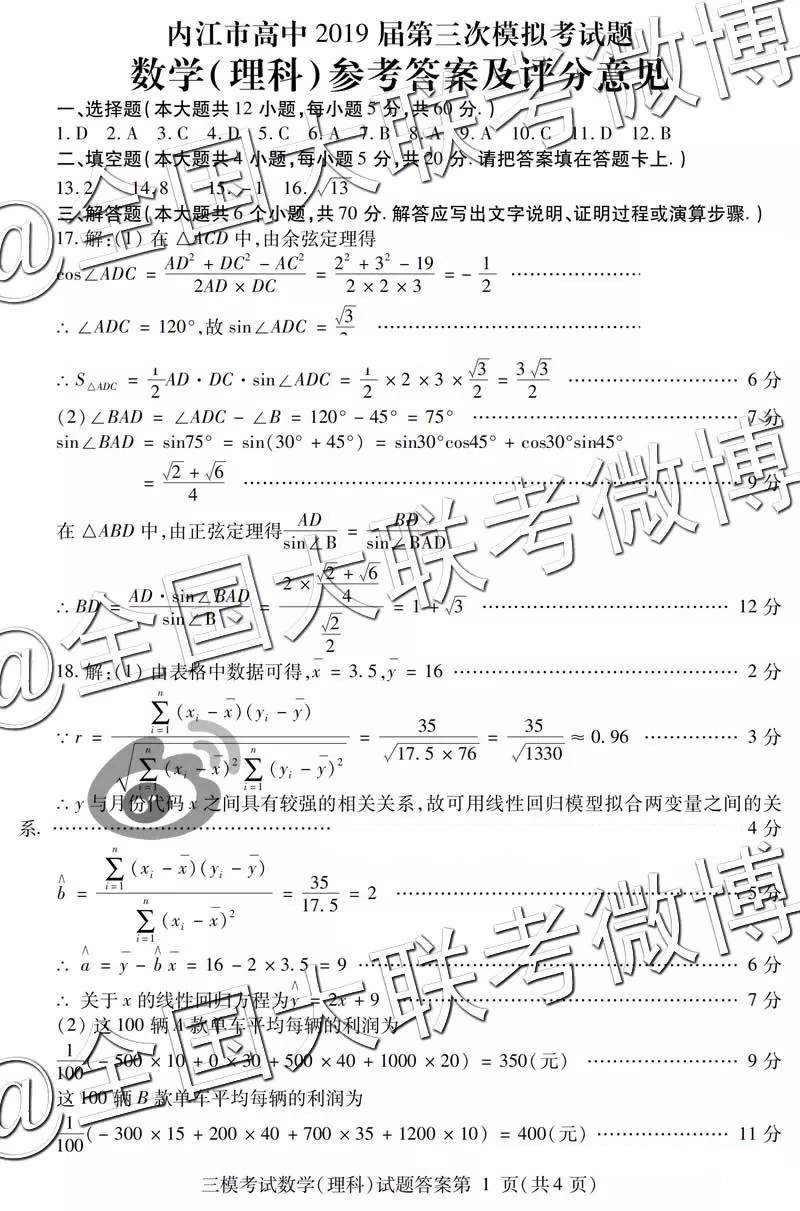 内江市高中2019届第三次模拟考试题
数学(理科)参考答案及评分意见
一、选择题(本大题共12小题,每小题5分,共60分.)
1.D 2.A 3.C 4.D 5.C 6.A 7.B 8.A 9.A 10.C 11.D 12.B
二、填空题(本大题共4小题,每小题5分,共20分.请把答案填在答题卡上.)
13.2 14.8 15.-1 16.√13
三、解答题(本大题共6个小题,共70分.解答应写出文字说明、证明过程或演算步骤.)
17.解:(1)在△ACD中,由余弦定理得
cos∠ADC = (AD²+DC²-AC²)/(2AD×DC) = (2²+3²-19)/(2×2×3) = -1/2 ……………
∴ ∠ADC = 120°,故 sin∠ADC = √3 ……………
∴ S△ADC = 1/2 AD·DC·sin∠ADC = 1/2 ×2×3× √3/2 = 3√3/2 …………… 6分
(2)∠BAD = ∠ADC - ∠B = 120° - 45° = 75° …………… 7分
sin∠BAD = sin75° = sin(30° + 45°) = sin30°cos45° + cos30°sin45°
= (√2+√6)/4 …………… 9分
在△ABD中,由正弦定理得 AD/sin∠B = BD/sin∠BAD
∴ BD = AD·sin∠BAD/sin∠B = (2×(√2+√6)/4)/(√2/2) = 1+√3 …………… 12分
18.解:(1)由表格中数据可得,x̄ = 3.5,ȳ = 16 …………… 2分
∵ r = ∑(i=1→n)(xᵢ-x̄)(yᵢ-ȳ)/√(∑(i=1→n)(xᵢ-x̄)²∑(i=1→n)(yᵢ-ȳ)²) = 35/√(17.5×76) = 35/√1330 ≈ 0.96 …………… 3分
∴ y与月份代码x之间具有较强的相关关系,故可用线性回归模型拟合两变量之间的关
系. …………… 4分
b̂ = ∑(i=1→n)(xᵢ-x̄)(yᵢ-ȳ)/∑(i=1→n)(xᵢ-x̄)² = 35/17.5 = 2 …………… 5分
∴ â = ȳ - b̂x̄ = 16 - 2×3.5 = 9 …………… 6分
∴ 关于x的线性回归方程为ŷ = 2x + 9 …………… 7分
(2)这100辆A款单车平均每辆的利润为
1/100(-500×10+0×30+500×40+1000×20) = 350(元) …………… 9分
这100辆B款单车平均每辆的利润为
1/100(-300×15+200×40+700×35+1200×10) = 400(元) …………… 11分
三模考试数学(理科)试题答案第 1 页(共4页)
@全国大联考微博
@全国大联考微博
@全国大联考微博